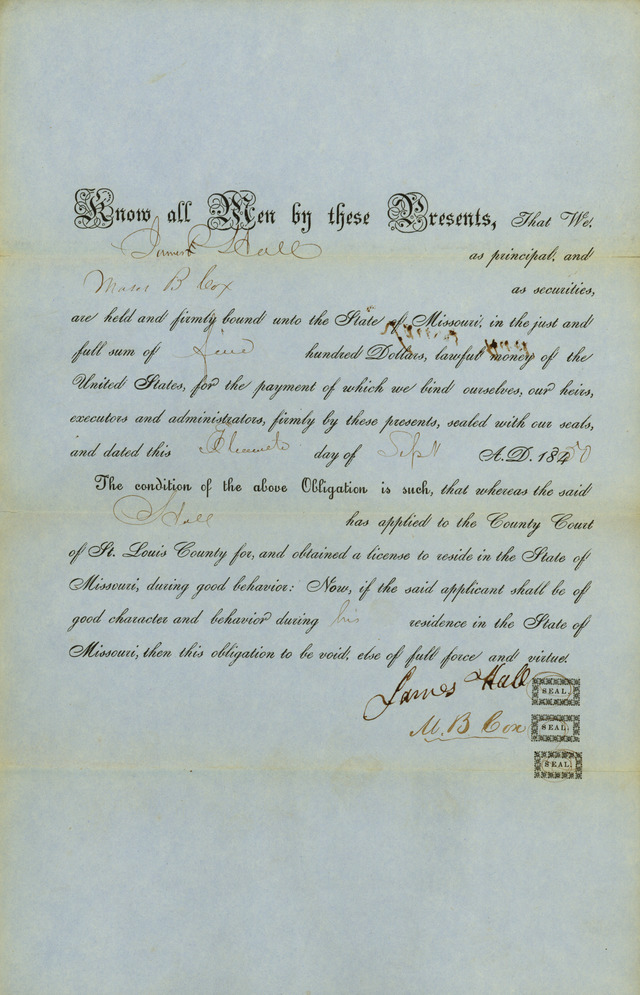 Know all Men by these Presents, That We,
James Hall as principal, and
Moses B Cox as securities,
are held and firmly bound unto the State of Missouri, in the just and
full sum of five hundred Dollars, lawful money of the
United States, for the payment of which we bind ourselves, our heirs,
executors and administrators, firmly by these presents, sealed with our seals,
and dated this day of Sept A.D. 1850
The condition of the above Obligation is such, that whereas the said
Hall has applied to the County Court
of St. Louis County for, and obtained a license to reside in the State of
Missouri, during good behavior: Now, if the said applicant shall be of
good character and behavior during his residence in the State of
Missouri, then this obligation to be void, else of full force and virtue.
James Hall SEAL.
M. B Cox SEAL.
SEAL.